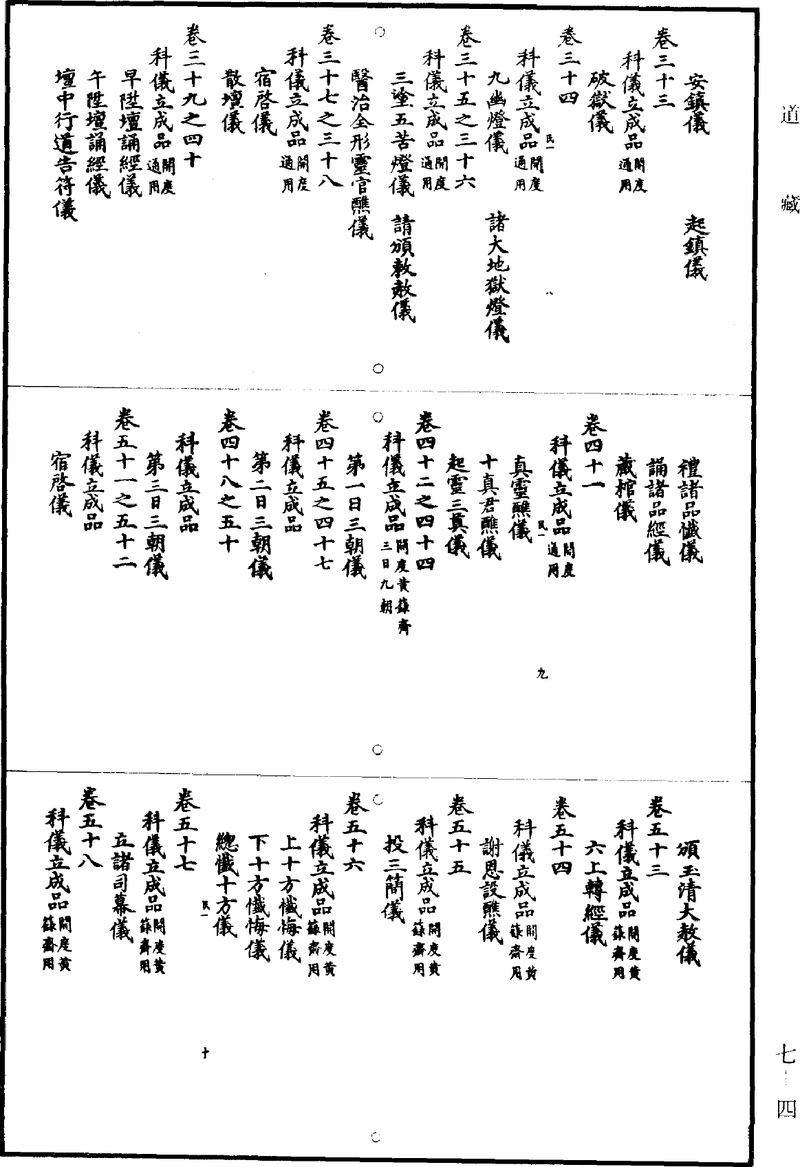 道藏
安鎮儀　起鎮儀
卷三十三
科儀立成品開度通用
破獄儀
卷三十四
民一
科儀立成品開度通用
九幽燈儀　諸大地獄燈儀
八
卷三十五之三十六
科儀立成品開度通用
三塗五苦燈儀　請頒敕赦儀
醫治全形靈官醮儀
卷三十七之三十八
科儀立成品開度通用
宿啓儀
散壇儀
卷三十九之四十
科儀立成品開度通用
早陞壇誦經儀
午陞壇誦經儀
壇中行道告符儀
禮諸品懺儀
誦諸品經儀
藏棺儀
卷四十一
科儀立成品開度通用
民一
九
真靈醮儀
十真君醮儀
起靈三奠儀
卷四十二之四十四
科儀立成品開度黃籙齋三日九朝
第一日三朝儀
卷四十五之四十七
科儀立成品
第二日三朝儀
卷四十八之五十
科儀立成品
第三日三朝儀
卷五十一之五十二
科儀立成品
宿啓儀
頒玉清大赦儀
卷五十三
科儀立成品開度黃籙齋用
六上轉經儀
卷五十四
科儀立成品開度黃籙齋用
謝恩設醮儀
卷五十五
科儀立成品開度黃籙齋用
投三簡儀
卷五十六
科儀立成品開度黃籙齋用
上十方懺悔儀
下十方懺悔儀
總懺十方儀
民一
十
卷五十七
科儀立成品開度黃籙齋用
立諸司幕儀
卷五十八
科儀立成品開度黃籙齋用
七－四